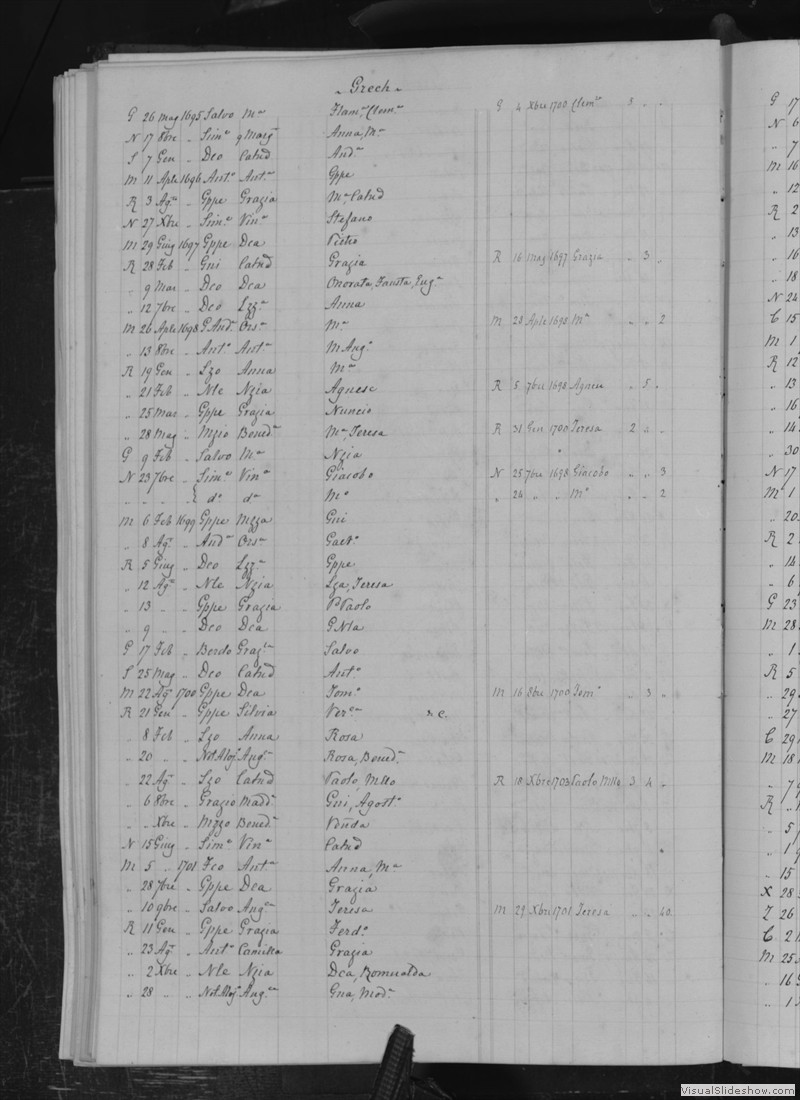 Grech
G 26 mag 1695 Salvo Mª Flamª, Clemª G 4 Xbre 1700 Clemª 3 „ „
N 17 8bre „ Simº q Marg Anna, Mª
S 7 Gen „ Dco Catnd Andª
M 11 Aple 1696 Antº Antª Gppe
R 3 Agº „ Gppe Grazia Mª, Catnd
N 27 Xbre „ Simº Vinª Stefano
M 29 Giug 1697 Gppe Dca Pietro
R 28 Feb „ Gni Catnd Grazia R 16 mag 1697 Grazia „ 3 „
„ 9 Mar „ Dco Dca Onorata, Fausta, Eugª
„ 12 7bre „ Dco Lzzª Anna
M 26 Aple 1698 G. Andª Orsª Mª M 28 Aple 1698 Mª „ „ 2
„ 13 8bre „ Antº Antª M Angª
R 19 Gen „ Lzo Anna Mª
„ 21 Feb „ Nle Nzia Agnese R 5 7bre 1698 Agnese „ 5 „
„ 25 Mar „ Gppe Grazia Nuncio
„ 28 Mag „ Mzio Benedª Mª, Teresa R 31 Gen 1700 Teresa 2 4 „
G 9 Feb „ Salvo Mª Nzia
N 23 7bre „ Simº Vinª Giacobo N 25 7bre 1698 Giacobo „ „ 3
„ „ „ „ { dº dª Mª „ 24 „ „ Mª „ „ 2
M 6 Feb 1699 Gppe Mzza Gni
„ 8 Agº „ Andª Orsª Gaetº
R 5 Giug „ Dco Lzzª Gppe
„ 12 Agº „ Nle Nzia Lza, Teresa
„ 13 „ „ Gppe Grazia P Paolo
„ 9 „ „ Dco Dca GNla
G 17 Feb „ Berdo Grazª Salvo
S 25 Mag „ Dco Catnd Antº
M 22 Agº 1700 Gppe Dca Tomº M 16 8bre 1700 Tomº „ 3 „
R 21 Gen „ Gppe Silvia Verª & c.
„ 8 Feb „ Lzo Anna Rosa
„ 20 „ „ Not Aloj Angª Rosa, Benedª
„ 22 Agº „ Lzo Catnd Paolo, Mllo R 18 Xbre 1703 Paolo Mllo 3 4 „
„ 6 8bre „ Grazio Maddª Gni, Agostº
„ „ Xbre „ Mzzo Benedª Veñda
N 15 Giug „ Simº Vinª Catnd
M 5 „ 1701 Fco Antª Anna, Mª
„ 28 7bre „ Gppe Dca Grazia
„ 10 9bre „ Salvo Angª Teresa M 29 Xbre 1701 Teresa „ „ 40
R 11 Gen „ Gppe Grazia Ferdº
„ 23 Agº „ Antº Camilla Grazia
„ 2 Xbre „ Nle Nzia Dca, Romualda
„ 28 „ „ Not Aloj Angª Gna, Modª
G 17
N 6
„ 7
M 16
„ 12
R 2
„ 13
„ 16
„ 18
N 24
C 15
M 1
R 12
„ 13
„ 16
„ 14
„ 30
N 17
M 1
„ 20
R 2
„ 14
„ 6
G 23
M 28
„ 1
R 5
„ 29
„ 27
C 29
M 18
„ 7
R „
„ 5
„ 1
„ 15
X 28
Z 26
C 2
M 25
„ 16
„ 1
VisualSlideshow.com